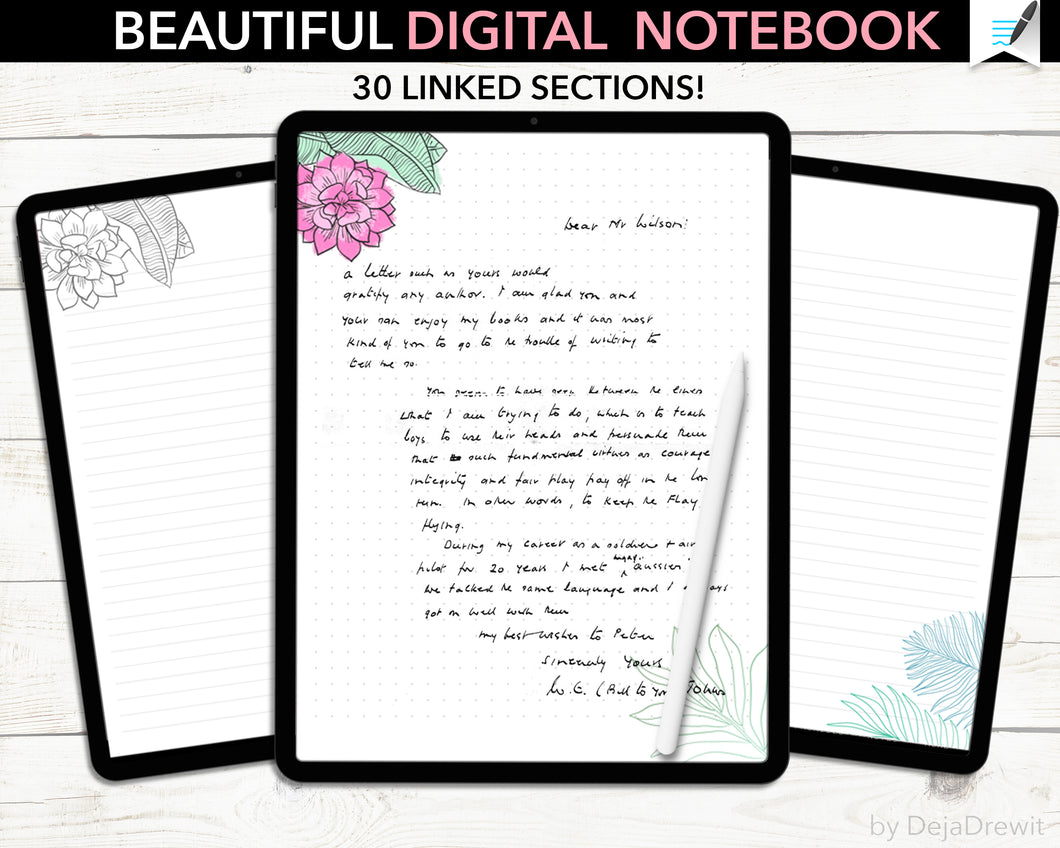 BEAUTIFUL DIGITAL NOTEBOOK
30 LINKED SECTIONS!
Dear Mr Wilson:
a letter such as yours would
gratify any author. I am glad you and
your son enjoy my books and it was most
kind of you to go to the trouble of writing to
tell me so.
You seem to have seen between the lines
what I am trying to do, which is to teach
boys to use their heads and persuade them
that such fundmental virtues as courage
integrity and fair play pay off in the lon
run. In other words, to keep the Flag
flying.
During my career as a soldier + air
pilot for 20 years I met many Aussies
We talked the same language and I
got on well with them
My best wishes to Peter
Sincerely Yours
W.E. (Bill to you) Johns
by DejaDrewit